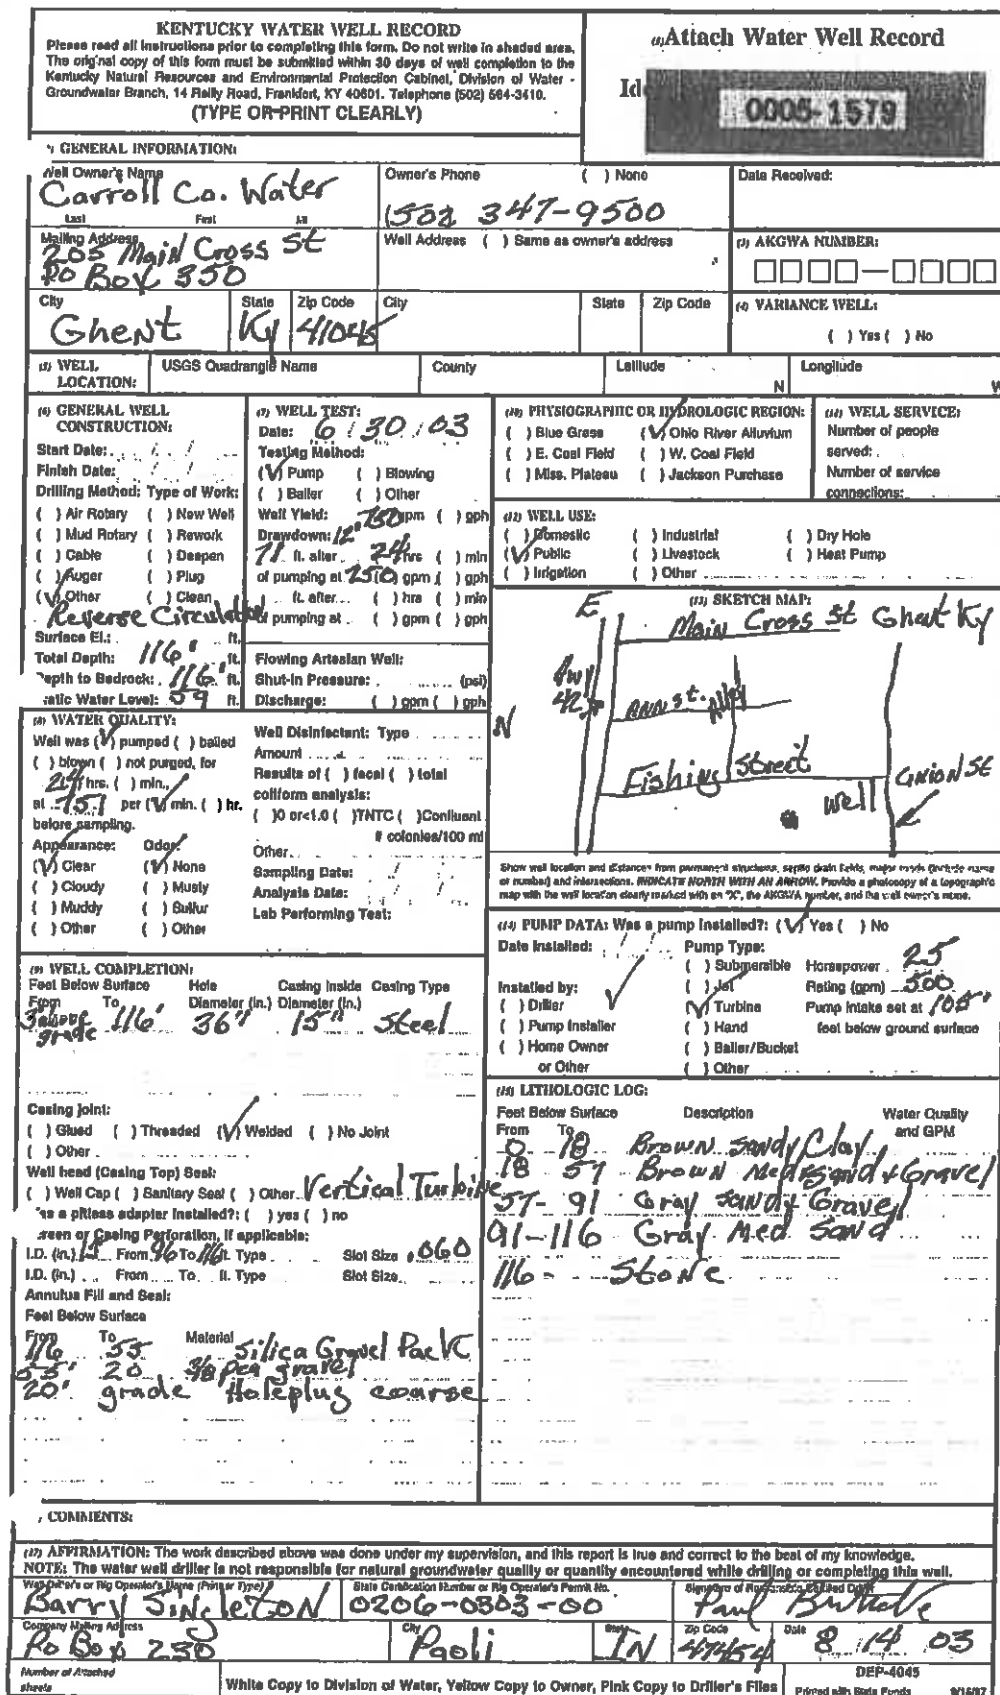 KENTUCKY WATER WELL RECORD
Please read all instructions prior to completing this form. Do not write in shaded area.
The original copy of this form must be submitted within 30 days of well completion to the
Kentucky Natural Resources and Environmental Protection Cabinet, Division of Water -
Groundwater Branch, 14 Reilly Road, Frankfort, KY 40601. Telephone (502) 564-3410.
(TYPE OR PRINT CLEARLY)
Attach Water Well Record
0005-1579
GENERAL INFORMATION:
Well Owner's Name
Carroll Co. Water
Last First
Owner's Phone ( ) None
(502 347-9500
Date Received:
Mailing Address
205 Main Cross St
Po Box 350
Well Address ( ) Same as owner's address
(3) AKGWA NUMBER:
City State Zip Code City State Zip Code
Ghent Ky 41045
(4) VARIANCE WELL:
( ) Yes ( ) No
(5) WELL LOCATION: USGS Quadrangle Name County Latitude N Longitude W
(6) GENERAL WELL
CONSTRUCTION:
Start Date: / /
Finish Date: / /
Drilling Method: Type of Work:
( ) Air Rotary ( ) New Well
( ) Mud Rotary ( ) Rework
( ) Cable ( ) Deepen
( ) Auger ( ) Plug
(✓) Other ( ) Clean
Reverse Circulation
Surface El.: ft.
Total Depth: 116' ft.
Depth to Bedrock: 116' ft.
Static Water Level: 59 ft.
(7) WELL TEST:
Date: 6/30/03
Testing Method:
(✓) Pump ( ) Blowing
( ) Bailer ( ) Other
Well Yield: 750 gpm ( ) gph
Drawdown: 12'
71 ft. after 24 hrs ( ) min
of pumping at 750 gpm ( ) gph
ft. after ( ) hrs ( ) min
of pumping at ( ) gpm ( ) gph
Flowing Artesian Well:
Shut-in Pressure: (psi)
Discharge: ( ) gpm ( ) gph
(10) PHYSIOGRAPHIC OR HYDROLOGIC REGION:
( ) Blue Grass (✓) Ohio River Alluvium
( ) E. Coal Field ( ) W. Coal Field
( ) Miss. Plateau ( ) Jackson Purchase
(11) WELL SERVICE:
Number of people
served:
Number of service
connections:
(12) WELL USE:
( ) Domestic ( ) Industrial ( ) Dry Hole
(✓) Public ( ) Livestock ( ) Heat Pump
( ) Irrigation ( ) Other
(13) SKETCH MAP:
E
Main Cross St Ghent Ky
Hwy
42
Ann St. Alley
N
Fishing Street
Union St
Well
Show well location and distances from permanent structures, septic drain fields, major roads (include name
or number) and intersections. INDICATE NORTH WITH AN ARROW. Provide a photocopy of a topographic
map with the well location clearly marked with an "X", the AKGWA number, and the well owner's name.
(8) WATER QUALITY:
Well was (✓) pumped ( ) bailed
( ) blown ( ) not purged, for
24 hrs. ( ) min.,
at 751 per (✓) min. ( ) hr.
before sampling.
Appearance: Odor:
(✓) Clear (✓) None
( ) Cloudy ( ) Musty
( ) Muddy ( ) Sulfur
( ) Other ( ) Other
Well Disinfectant: Type
Amount
Results of ( ) fecal ( ) total
coliform analysis:
( )0 or<1.0 ( )TNTC ( )Confluent
# colonies/100 ml
Other
Sampling Date: / /
Analysis Date: / /
Lab Performing Test:
(14) PUMP DATA: Was a pump installed?: (✓) Yes ( ) No
Date Installed: / / Pump Type:
( ) Submersible Horsepower 25
Installed by: ( ) Jet Rating (gpm) 500
( ) Driller (✓) Turbine Pump intake set at 105'
( ) Pump Installer ( ) Hand feet below ground surface
( ) Home Owner ( ) Bailer/Bucket
or Other ( ) Other
(9) WELL COMPLETION:
Feet Below Surface Hole Casing Inside Casing Type
From To Diameter (in.) Diameter (in.)
3' above grade 116' 36" 15" Steel
Casing joint:
( ) Glued ( ) Threaded (✓) Welded ( ) No Joint
( ) Other
Well head (Casing Top) Seal:
( ) Well Cap ( ) Sanitary Seal ( ) Other Vertical Turbine
Was a pitless adapter installed?: ( ) yes ( ) no
Screen or Casing Perforation, if applicable:
I.D. (in.) 15 From 96 To 116 ft. Type Slot Size .060
I.D. (in.) From To ft. Type Slot Size
Annulus Fill and Seal:
Feet Below Surface
From To Material
116 55 Silica Gravel Pack
55' 20 3/8 pea gravel
20' grade Holeplug coarse
(15) LITHOLOGIC LOG:
Feet Below Surface Description Water Quality
From To and GPM
0 18 Brown Sandy Clay
18 57 Brown Med Sand + Gravel
57-91 Gray Sandy Gravel
91-116 Gray Med Sand
116- Stone
COMMENTS:
(17) AFFIRMATION: The work described above was done under my supervision, and this report is true and correct to the best of my knowledge.
NOTE: The water well driller is not responsible for natural groundwater quality or quantity encountered while drilling or completing this well.
Well Driller's or Rig Operator's Name (Print or Type) State Certification Number or Rig Operator's Permit No. Signature of Responsible Certified Driller
Barry Singleton 0206-0303-00 Paul
Company Mailing Address City State Zip Code Date
Po Box 230 Paoli IN 47454 8/14/03
Number of Attached
sheets
White Copy to Division of Water, Yellow Copy to Owner, Pink Copy to Driller's Files
DEP-4045
Printed with State Funds